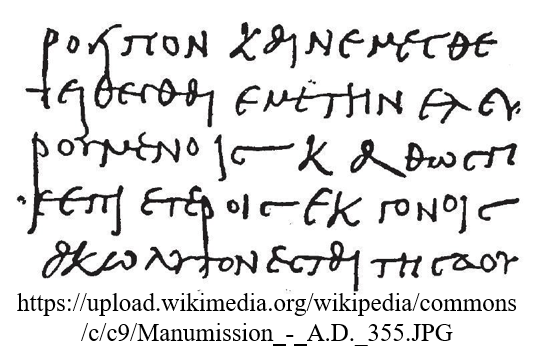 νεμεσθε
τειθεσθαι εμε την ελευ
ρουμενοις καθως π
επι ετεροις εκγονοις
ακωλυτον εσται της δου
https://upload.wikimedia.org/wikipedia/commons
/c/c9/Manumission_-_A.D._355.JPG